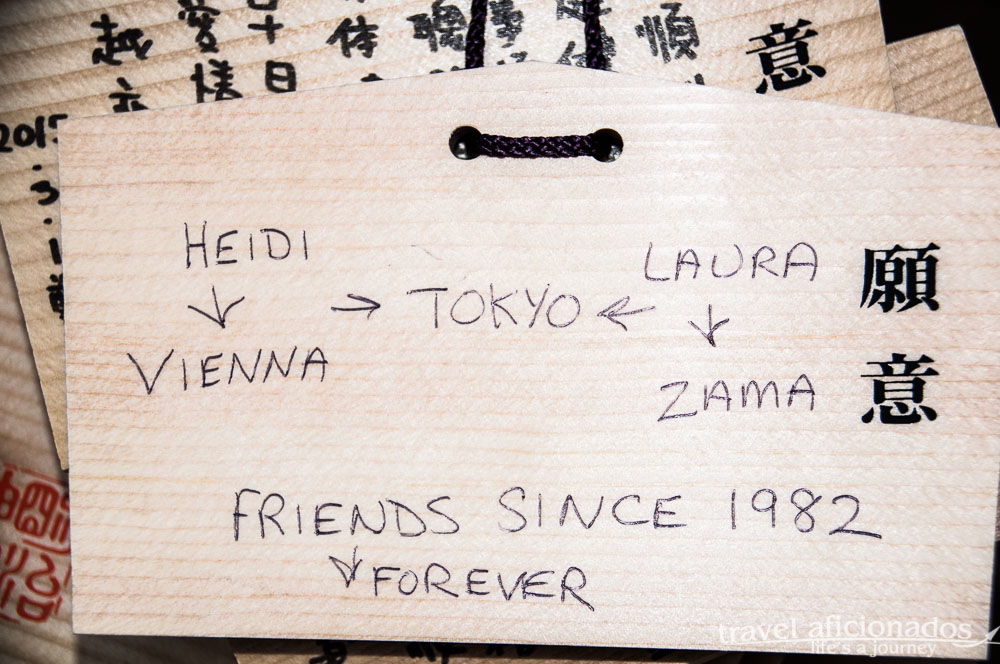 順
意
2015
.
3
.
1
HEIDI
LAURA
↓ → TOKYO ← ↓
VIENNA
ZAMA
願
意
FRIENDS SINCE 1982
↓ FOREVER
travel aficionados
life's a journey